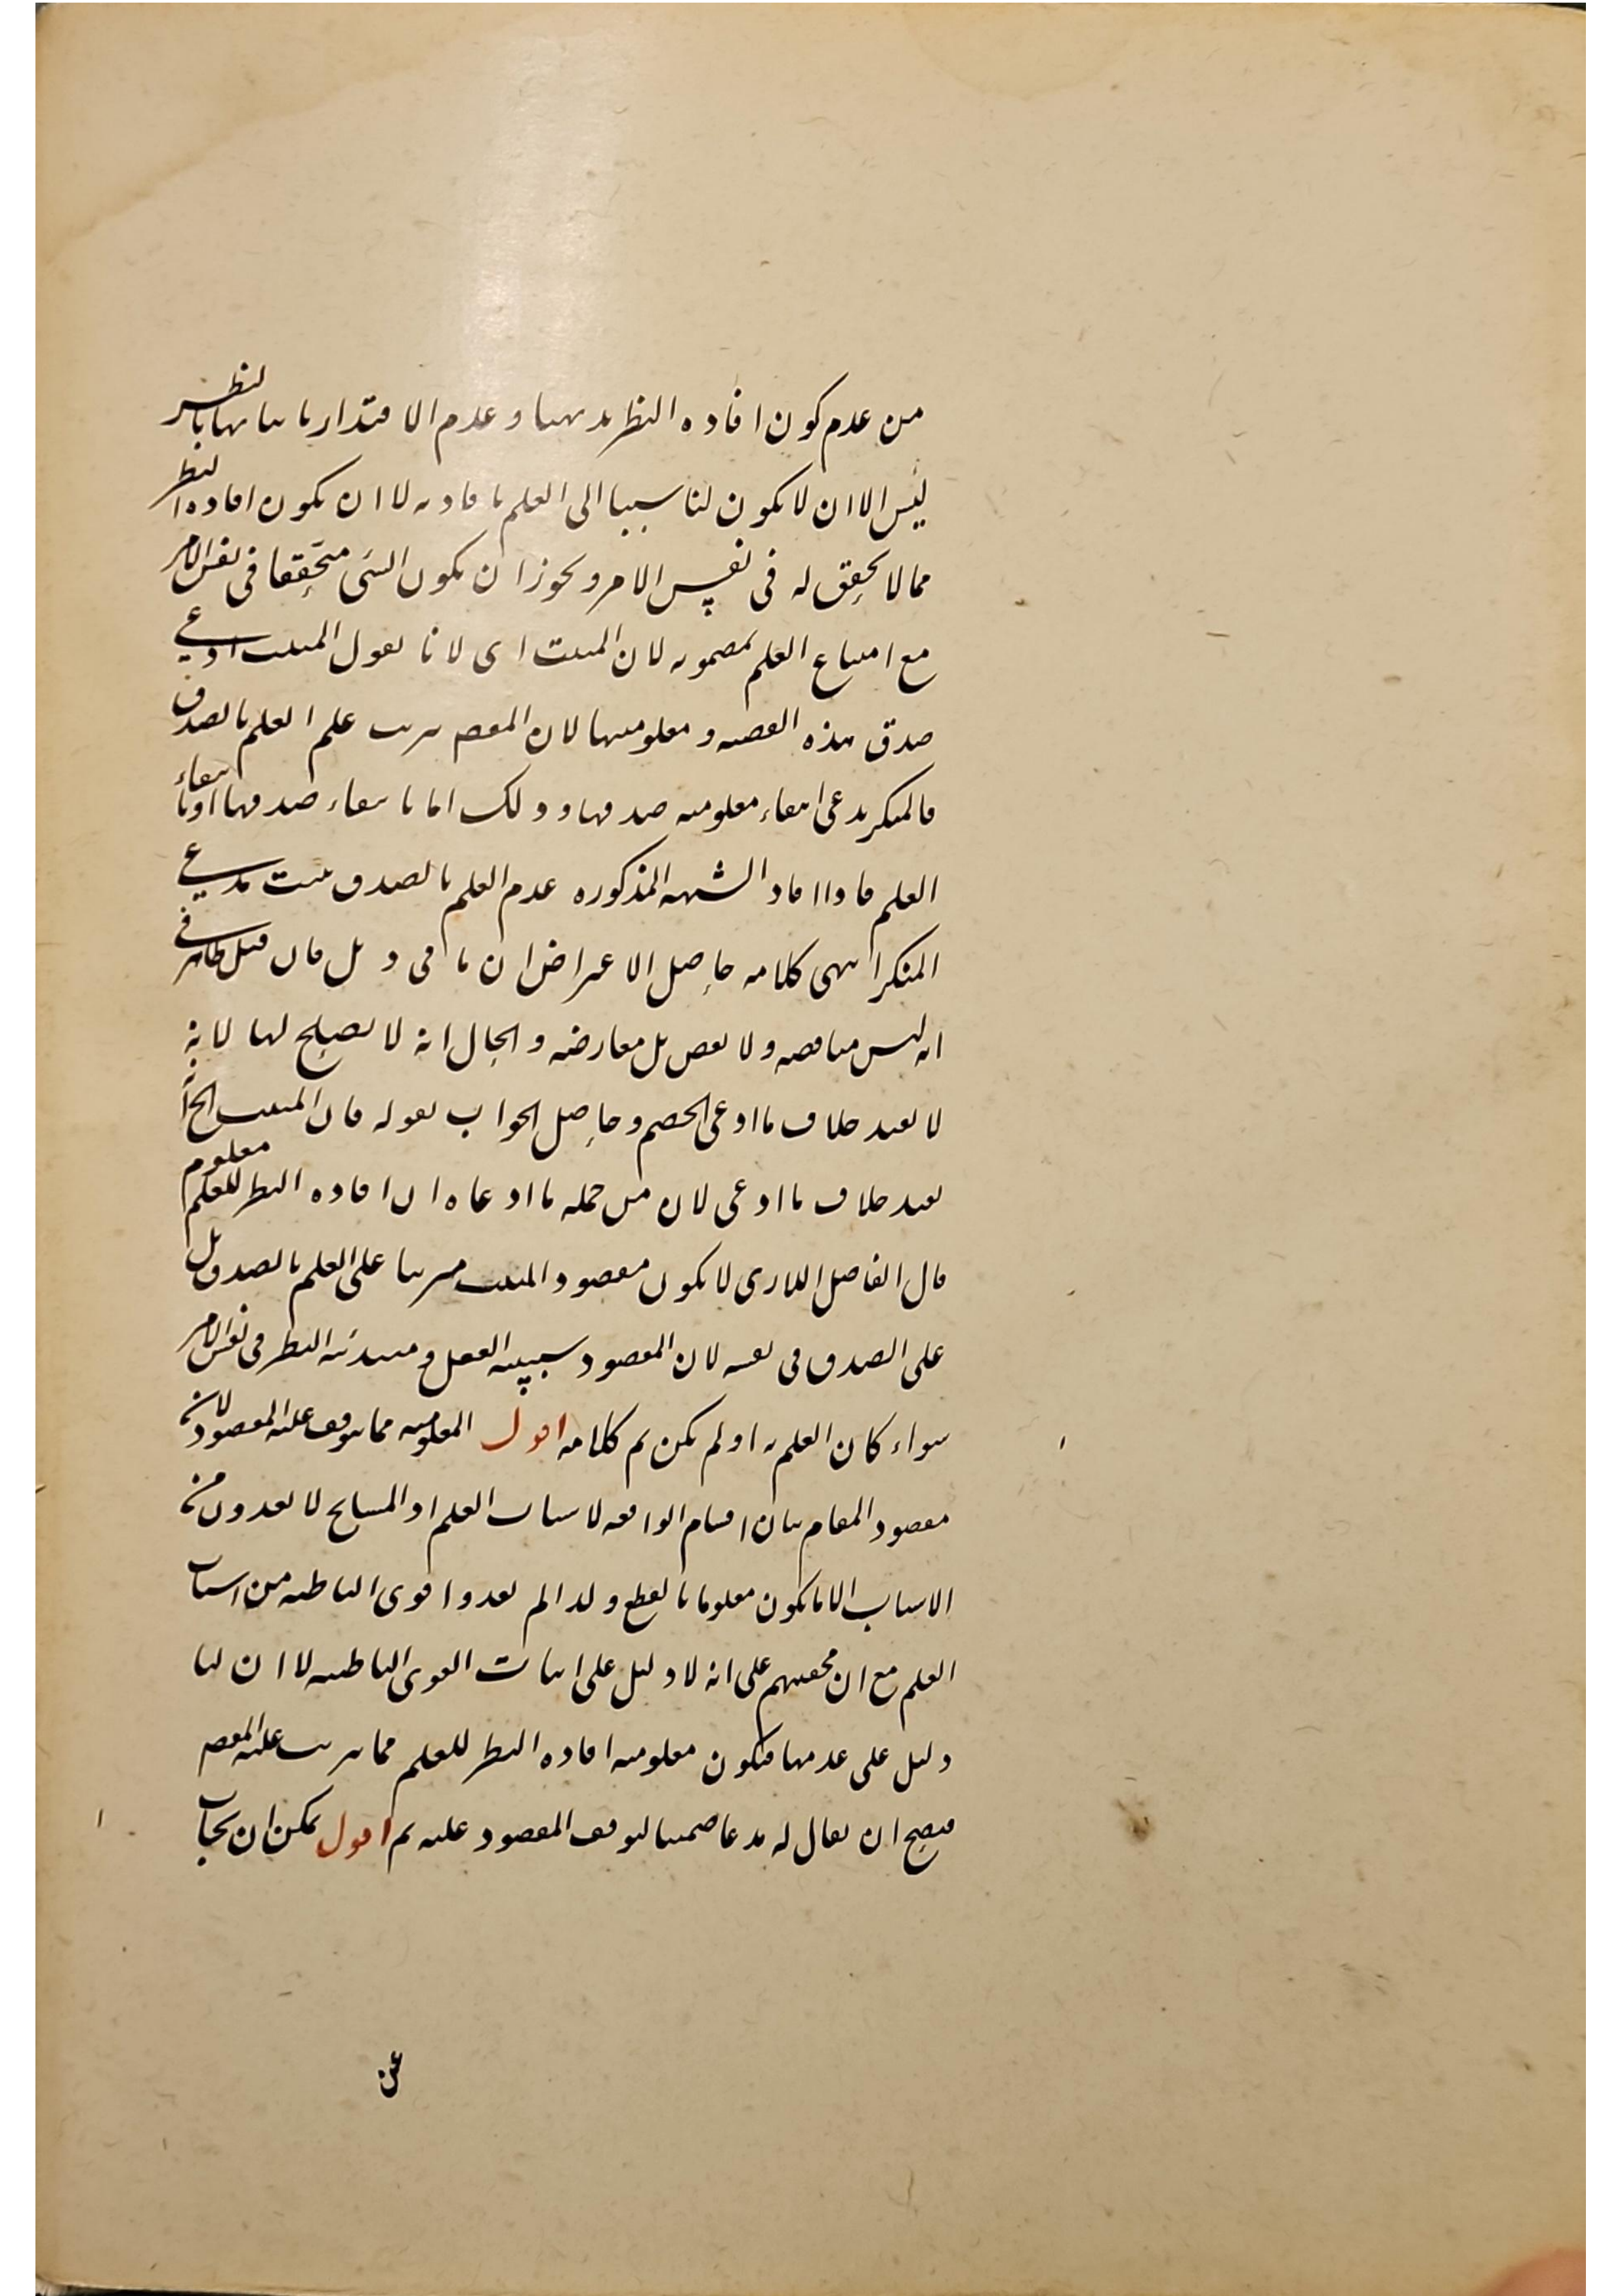 من عدم كون افاده النظر بديهيا و عدم الاقتدار باثباتها بالنظر
ليس الا ان لا يكون لنا سبيبا الى العلم بافادته لا ان يكون افاده النظر
مما لا تحقق له فى نفس الامر و يجوز ان يكون الشى متحققا فى نفس الامر
مع امتناع العلم بمضمونه لان المثبت اى لانا نقول المثبت ادعى
صدق هذه القضيه و معلوميتها لان المقصـ يترتب على العلم بالصدق
فالمنكر يدعى انتفاء معلوميه صدقها و ذلك اما بانتفاء صدقها او بانتفاء
العلم فاذا افاد الشبهه المذكوره عدم العلم بالصدق ثبت مدعى
المنكر انتهى كلامه حاصل الاعتراض ان ما فى ذيل فان قيل ظاهر فى
انه ليس مناقضه و لا نقض بل معارضه و الحال انه لا تصلح لها لانه
لا تفيد خلاف ما ادعى الخصم و حاصل الجواب بقوله فان المثبت الخ
تفيد خلاف ما ادعى لان من جمله ما ادعاه ان افاده النظر للعلم معلوم
قال الفاضل اللارى لا يكون مقصود المثبت مترتبا على العلم بالصدق بل
على الصدق فى نفسه لان المقصود سببيه العقل و مفيديه النظر فى نفس الامر
سواء كان العلم به او لم يكن تم كلامه اقول المعلوميه مما يتوقف عليه المقصود لان
مقصود المقام بيان اقسام الواقعه لاسباب العلم او المشايخ لا يعدون من
الاسباب الا ما يكون معلوما بالقطع و لذا لم يعدوا قوى الباطنه من اسباب
العلم مع ان محققيهم على انه لا دليل على اثبات القوى الباطنه لا ان لنا
دليل على عدمها فتكون معلوميه افاده النظر للعلم مما يترتب عليه المقصـ
فيصح ان يقال له مدعا ضمنيا لتوقف المقصود عليه ثم اقول يمكن ان يجاب
عن